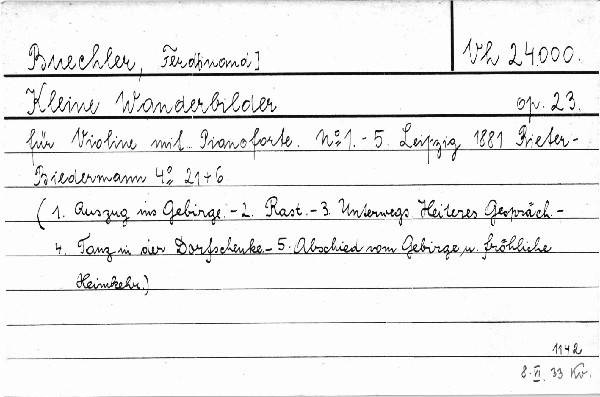 Buechler, Ferdinand]
Vh 24.000.
Kleine Wanderbilder op. 23.
für Violine mit Pianoforte. No 1. - 5. Leipzig 1881 Rieter-
Biedermann 4o 21+6
(1. Auszug ins Gebirge. - 2. Rast. - 3. Unterwegs Heiteres Gespräch. -
4. Tanz in der Dorfschenke. - 5. Abschied vom Gebirge u. fröhliche
Heimkehr.)
1142
8. VI. 33 Kv.